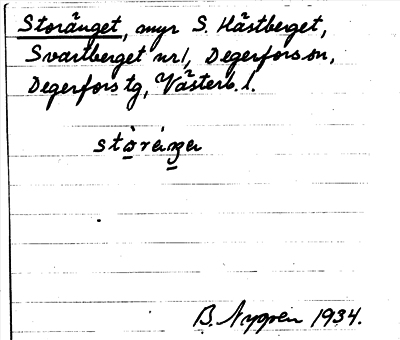 Storänget, myr S. Hästberget,
Svartberget nr 1, Degerfors sn,
Degerfors tg, Västerb. l.
B. Nygren 1934.